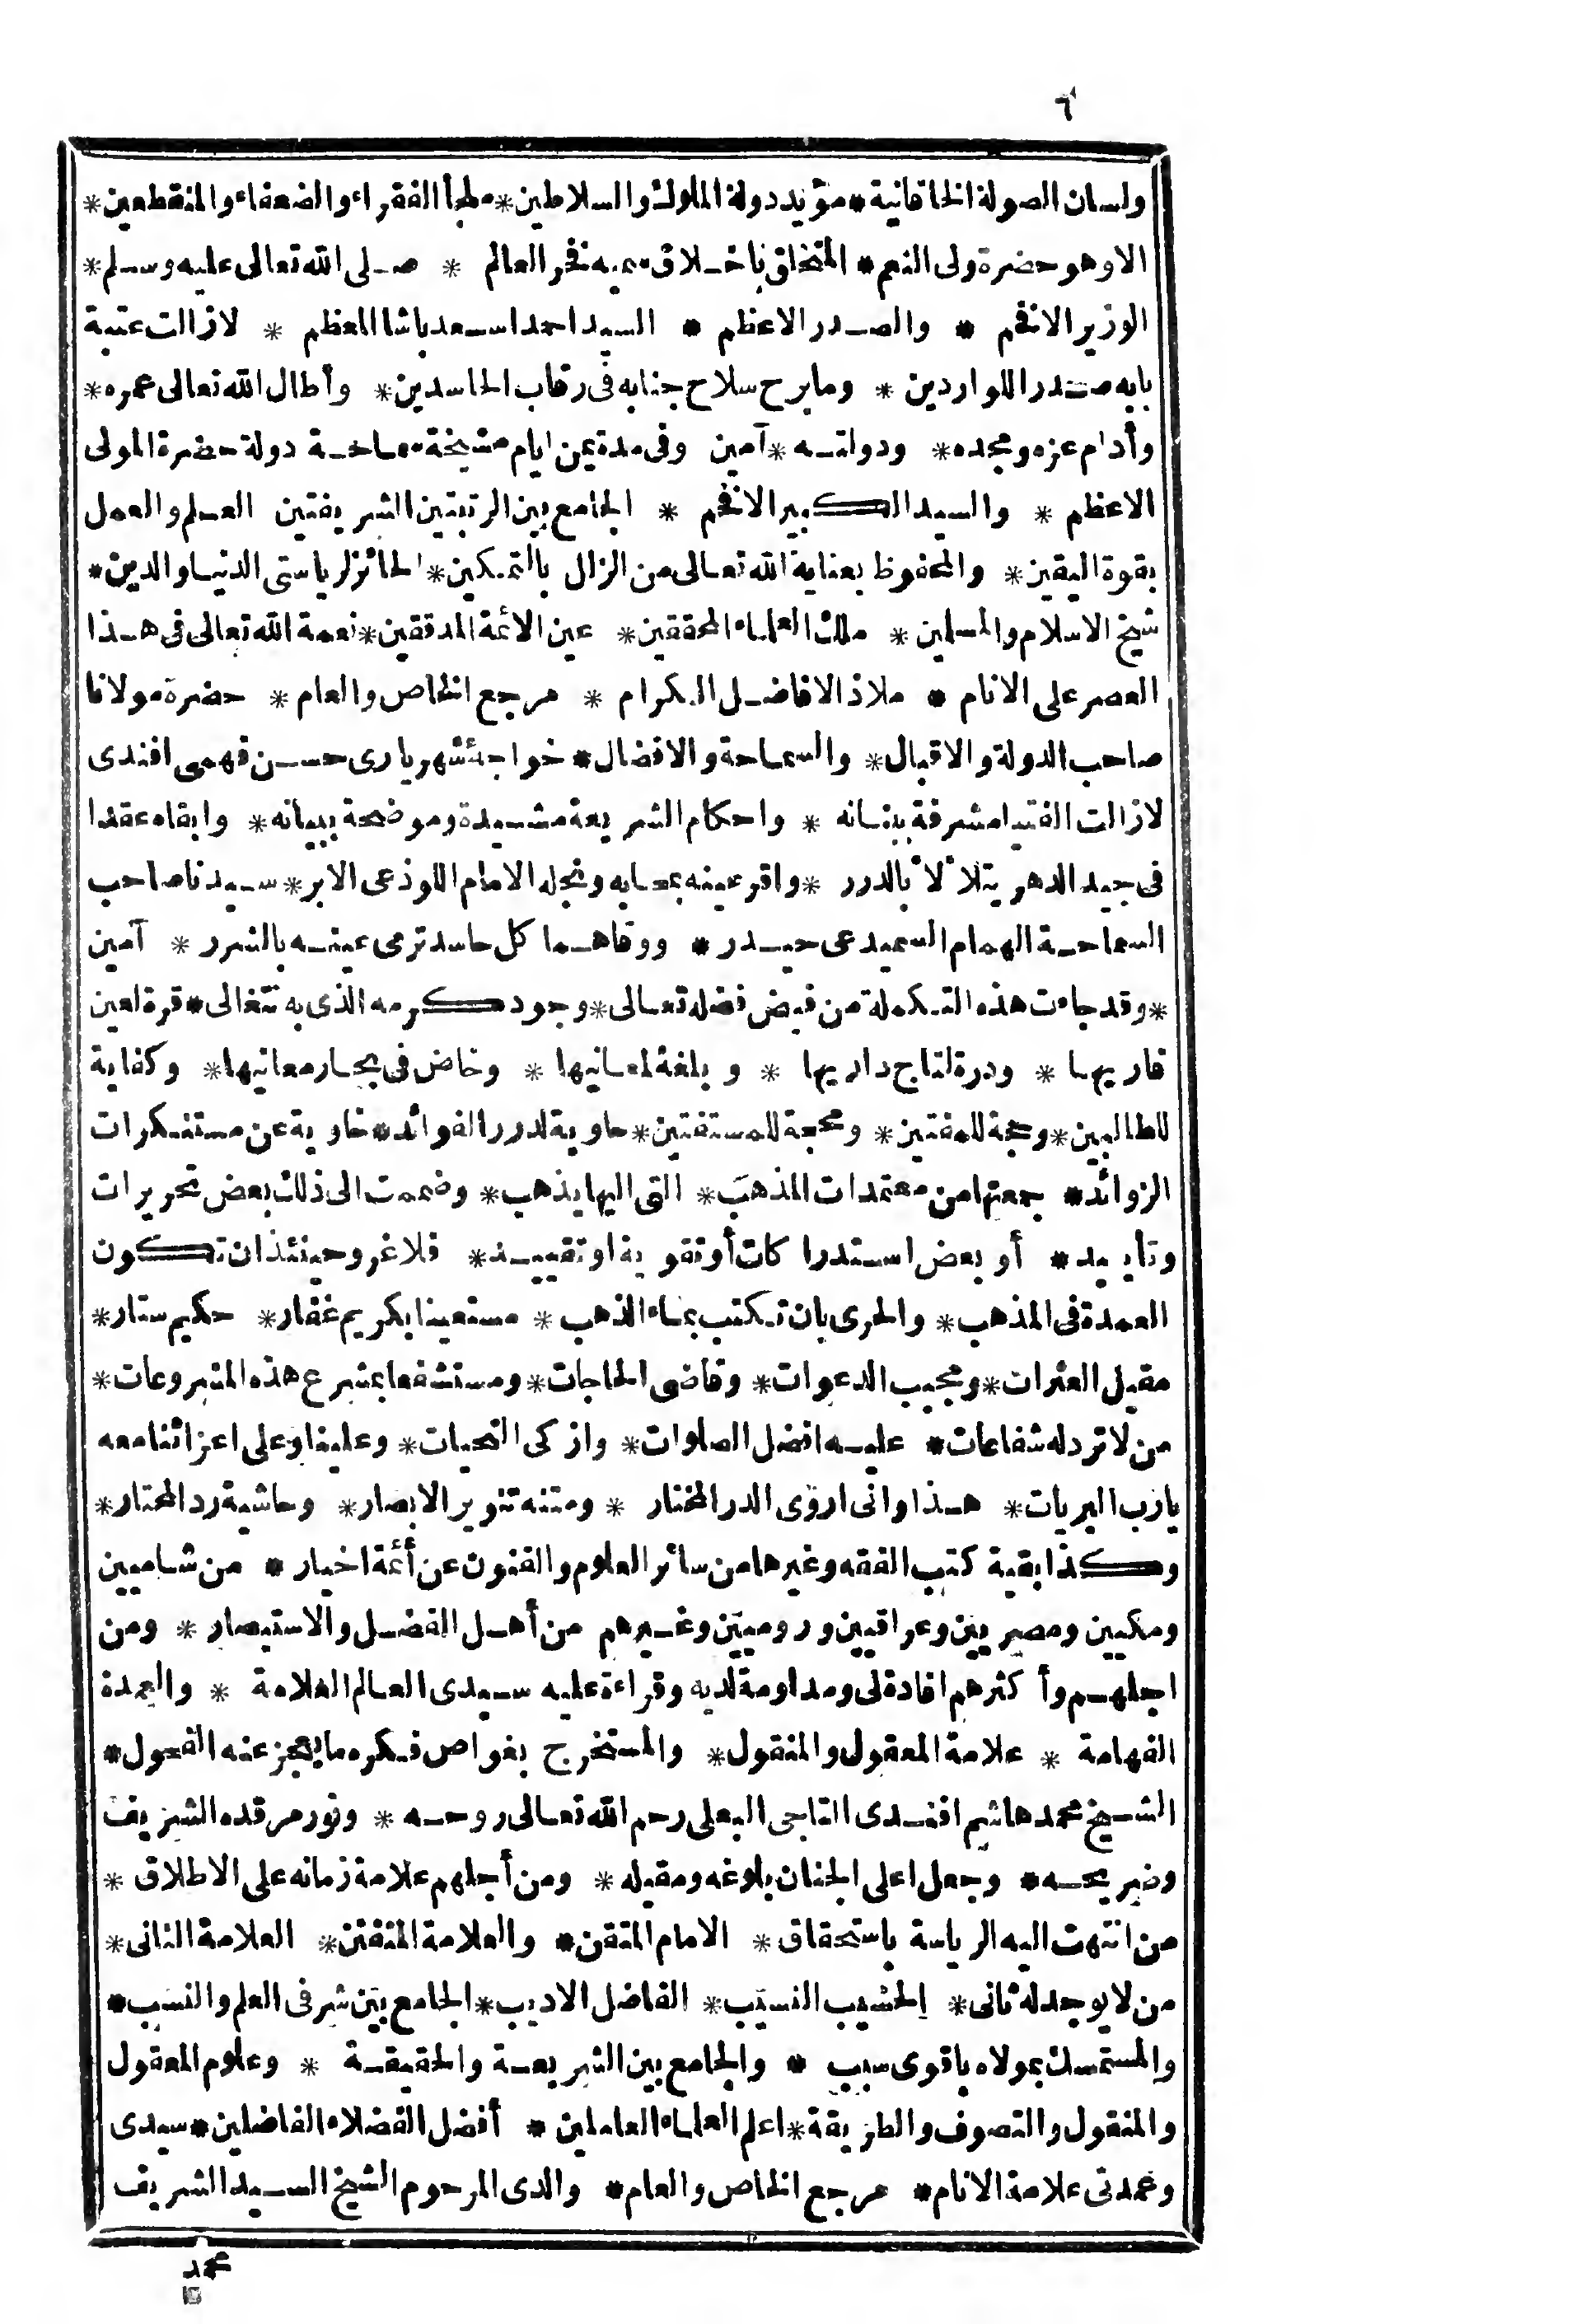 ٦
ولسان الصولة الخاقانية * مؤيد دولة الملوك والسلاطين * ملجأ الفقراء والضعفاء والمنقطعين *
الا وهو حضرة ولى النعم * المتخلق باخلاق سميه فخر العالم * صلى الله تعالى عليه وسلم *
الوزير الافخم * والصدر الاعظم * السيد احمد اسعد باشا المعظم * لازالت عتبة
بابه مصدرا للواردين * وما برح سلاح جنابه فى رقاب الحاسدين * وأطال الله تعالى عمره *
وأدام عزه ومجده * ودولته * آمين وفى مدة يمن ايام مشيخة سماحة دولة حضرة المولى
الاعظم * والسيد الكبير الافخم * الجامع بين الرتبتين الشريفتين العلم والعمل
بقوة اليقين * والمحفوظ بعناية الله تعالى من الزلل بالتمكين * الحائز لرياستى الدنيا والدين *
شيخ الاسلام والمسلمين * ملك العلماء المحققين * عين الائمة المدققين * نعمة الله تعالى فى هذا
العصر على الانام * ملاذ الافاضل الكرام * مرجع الخاص والعام * حضرة مولانا
صاحب الدولة والاقبال * والسماحة والافضال * خواجهٔ شهريارى حسن فهمى افندى
لازالت الفتيا مشرفة ببنانه * واحكام الشريعة مشيدة وموضحة ببيانه * وابقاه عقدا
فى جيد الدهر يتلألأ بالدرر * واقر عينه بمصابه ونجله الامام اللوذعى الابر * سيدنا صاحب
السماحة الهمام السميدعى حيدر * ووقاهما كل حاسد ترمى عينه بالشرر * آمين
* وقد جاءت هذه التكملة من فيض فضله تعالى * وجود كرمه الذى به تتغالى * قرة لعين
قاريها * ودرة لتاج داريها * وبلغة لمعانيها * وخاض فى بحار معانيها * وكفاية
للطالبين * وحجة للمفتين * ومحجة للمستفتين * حاوية لدرر الفوائد * خاوية عن مستنكرات
الزوائد * جمعتها من معتمدات المذهب * التى اليها يذهب * وضممت الى ذلك بعض تحريرات
وتأييد * أو بعض استدراكات أو تقوية او تقييد * فلا غرو حينئذ ان تكون
العمدة فى المذهب * والحرى بان تكتب بماء الذهب * مستعينا بكريم غفار * حكيم ستار *
مقيل العثرات * ومجيب الدعوات * وقاضى الحاجات * ومستشفعا بمشرع هذه المشروعات *
من لا ترد له شفاعات * عليه افضل الصلوات * وازكى التحيات * وعلينا وعلى اعزائنا معه
يا رب البريات * هذا وانى اروى الدر المختار * ومتنه تنوير الابصار * وحاشية رد المحتار *
وكذا بقية كتب الفقه وغيرها من سائر العلوم والفنون عن أئمة اخيار * من شاميين
ومكيين ومصريين وعراقيين وروميين وغيرهم من أهل الفضل والاستبصار * ومن
اجلهم وأكثرهم افادة لى ومداومة لديه وقراءة عليه سيدى العالم العلامة * والعمدة
الفهامة * علامة المعقول والمنقول * والمستخرج بغواص فكره ما يعجز عنه الفحول *
الشيخ محمد هاشم افندى التاجى البعلى رحم الله تعالى روحه * ونور مرقده الشريف
وضريحه * وجعل اعلى الجنان بلوغه ومقيله * ومن أجلهم علامة زمانه على الاطلاق *
من انتهت اليه الرياسة باستحقاق * الامام المتقن * والعلامة المتفنن * العلامة الثانى *
من لا يوجد له ثانى * الحسيب النسيب * الفاضل الاديب * الجامع بين شرفى العلم والنسب *
والمستمسك بمولاه باقوى سبب * والجامع بين الشريعة والحقيقة * وعلوم المعقول
والمنقول والتصوف والطريقة * اعلم العلماء العاملين * أفضل الفضلاء الفاضلين * سيدى
وعمدتى علامة الانام * مرجع الخاص والعام * والدى المرحوم الشيخ السيد الشريف
محمد